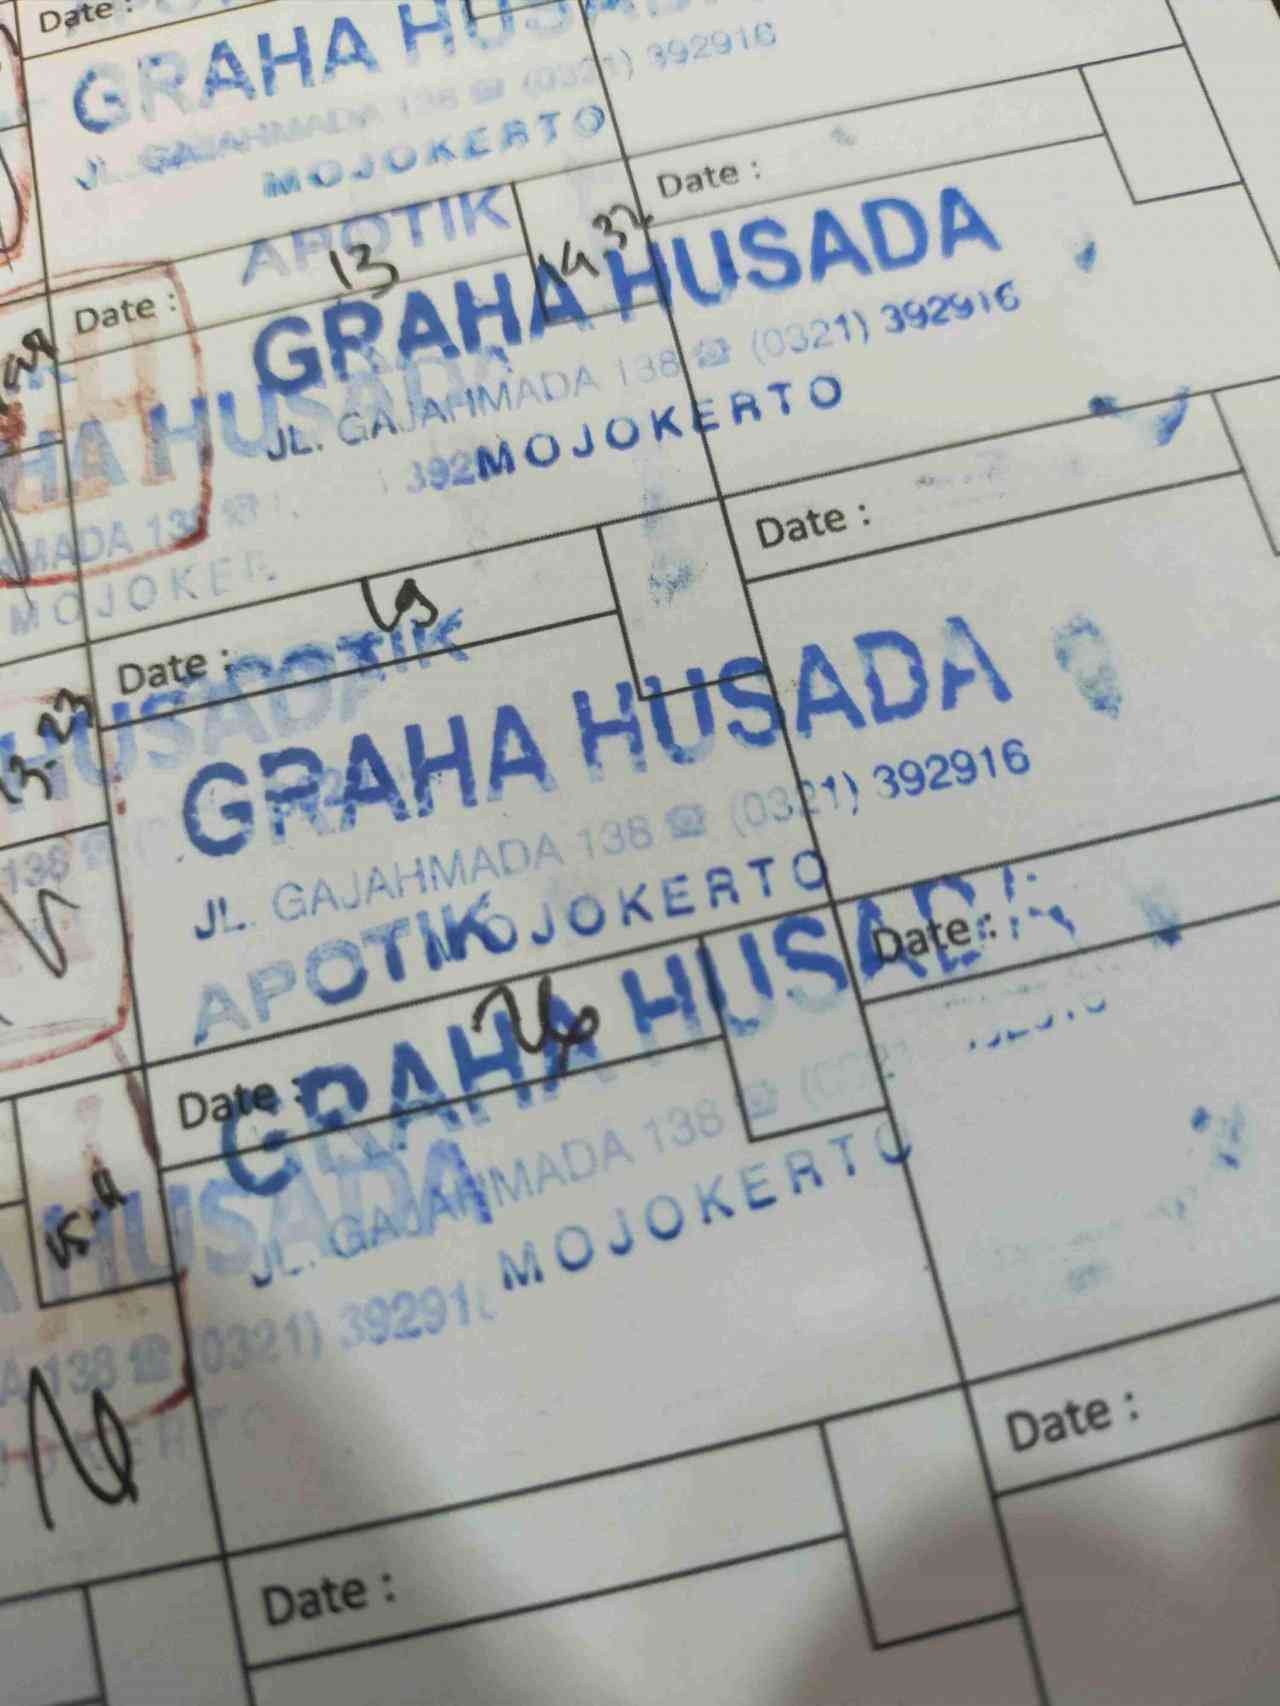 Date :
GRAHA HUSADA
JL. GAJAHMADA 138 ☎ (0321) 392916
MOJOKERTO
Date :
APOTIK
Date : 13
GRAHA HUSADA
JL. GAJAHMADA 138 ☎ (0321) 392916
MOJOKERTO
HA HUSADA
392
MADA 138
MOJOKER
Date :
Date :
APOTIK
HUSADA
GRAHA HUSADA
JL. GAJAHMADA 138 ☎ (0321) 392916
MOJOKERTO
138
APOTIK
Date :
Date :
GRAHA HUSADA
JL. GAJAHMADA 138
MOJOKERTO
HUSADA
138 ☎ (0321) 39291
Date :
Date :